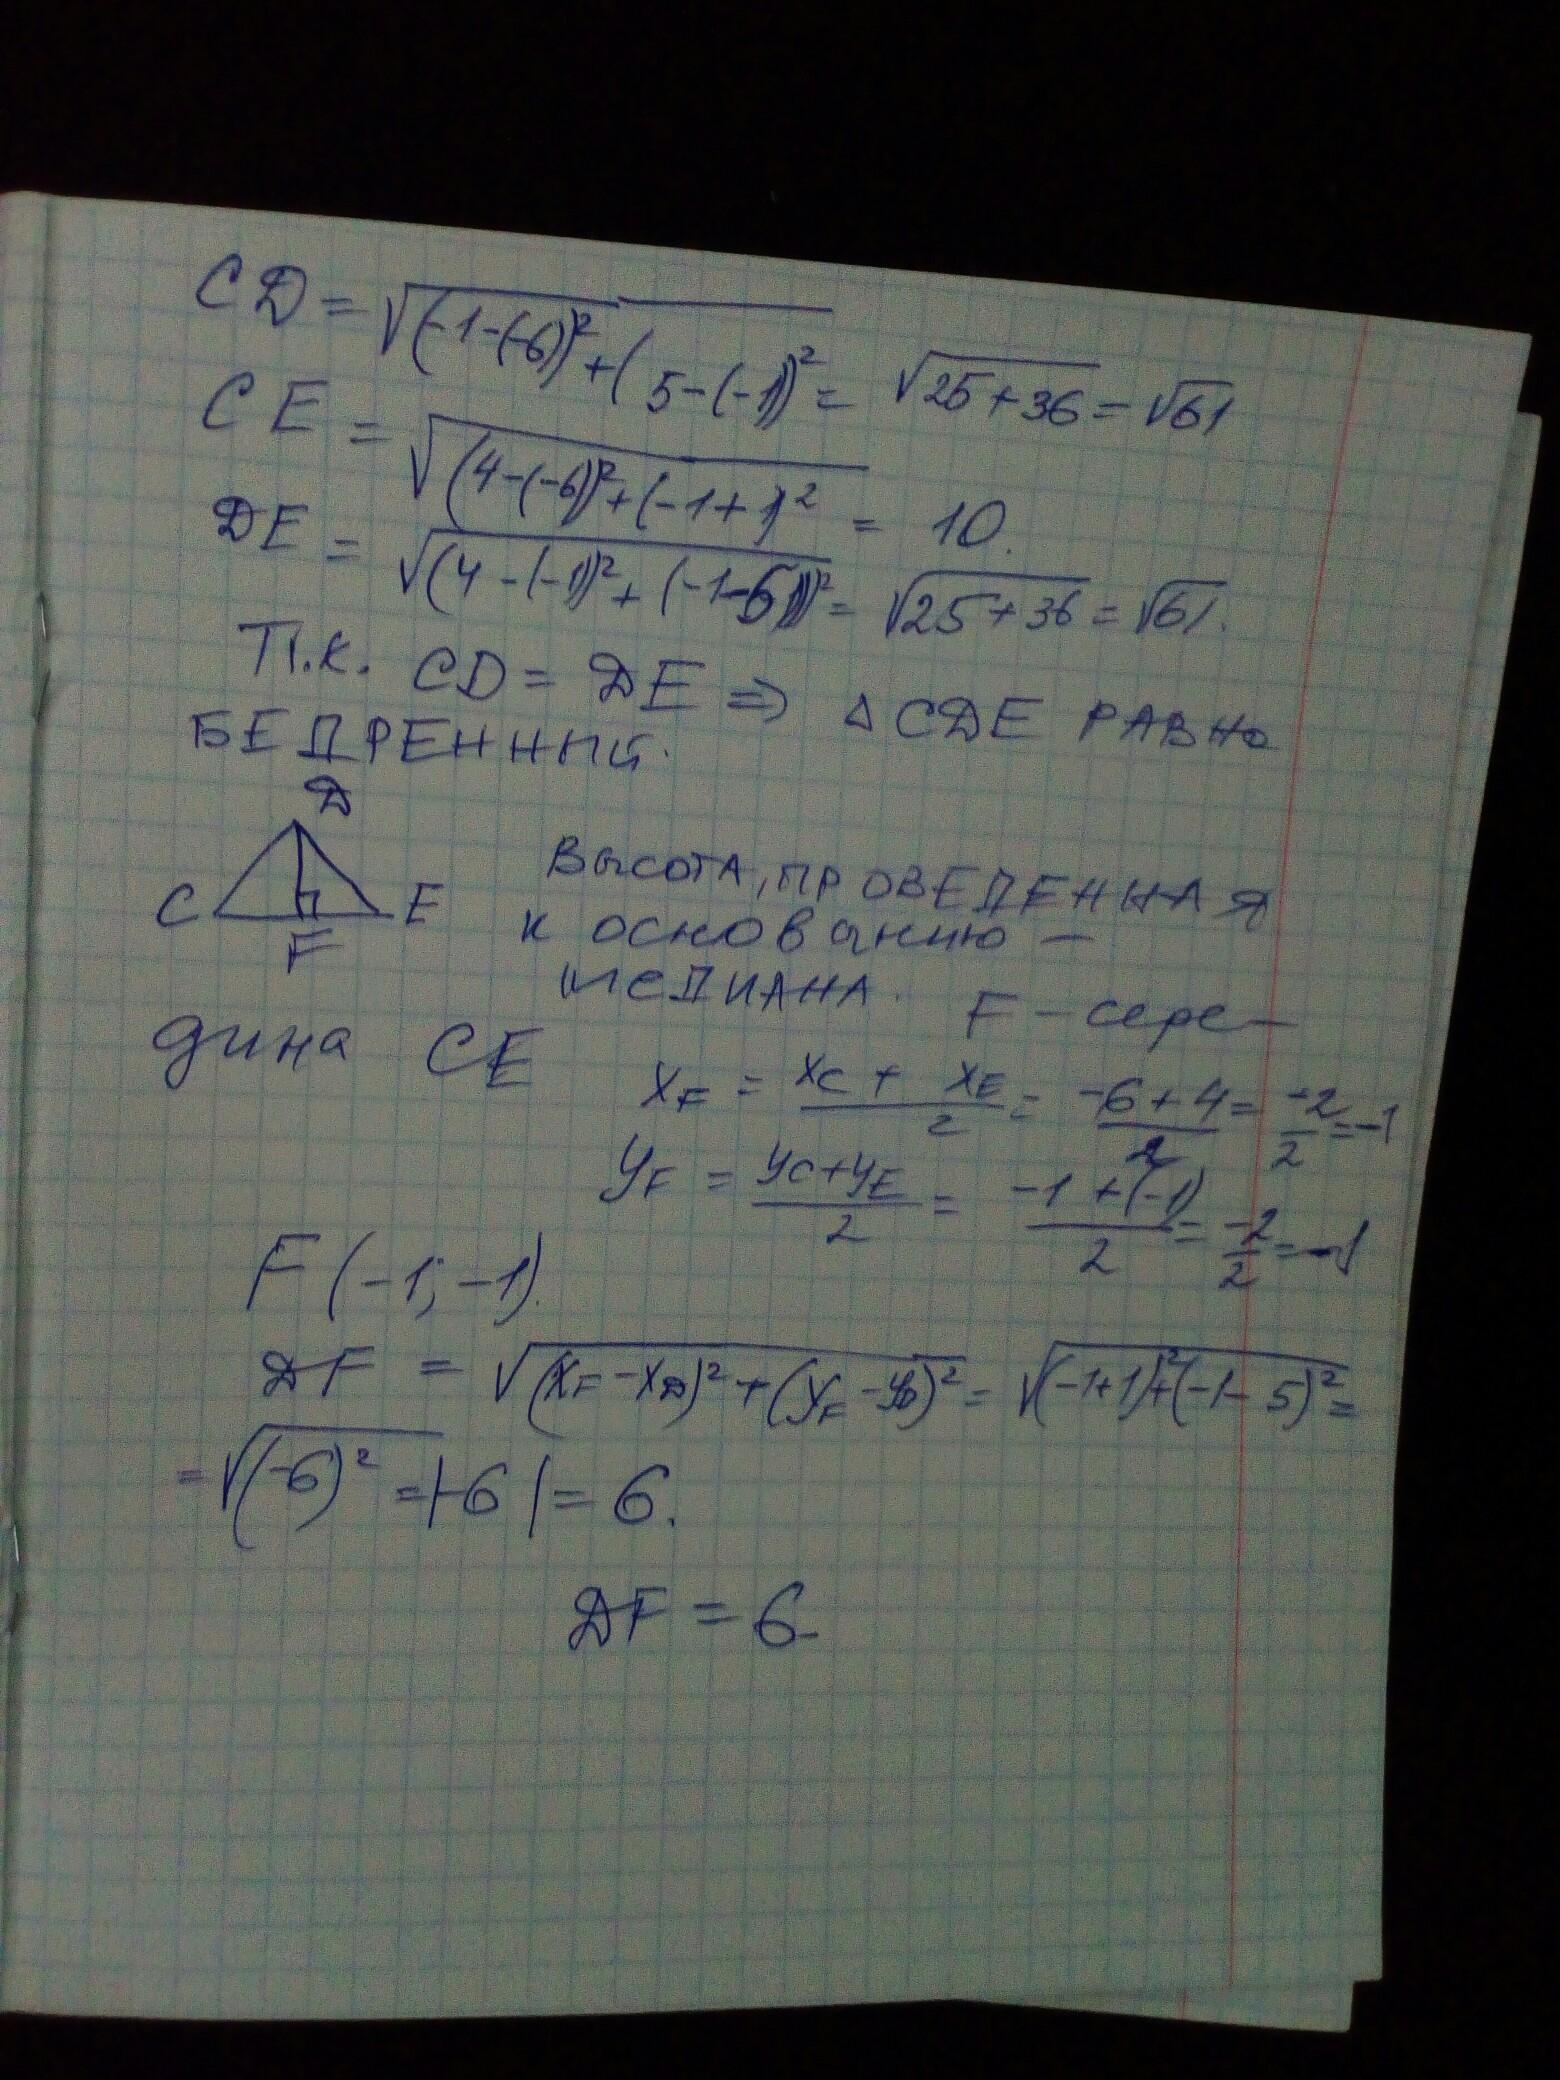 CD = √(-1-(-6))² + (5-(-1))² = √25+36 = √61
CE = √(4-(-6))² + (-1+1)² = 10.
DE = √(4-(-1))² + (-1-5))² = √25+36 = √61.
Т.к. CD = DE ⇒ △ CDE РАВНО
БЕДРЕННЫЙ.
D
C E
F
ВЫСОТА, ПРОВЕДЕННАЯ
К основанию –
МЕДИАНА. F – сере–
дина CE
x_F = (x_C + x_E)/2 = (-6+4)/2 = -2/2 = -1
y_F = (y_C+y_E)/2 = (-1+(-1))/2 = -2/2 = -1
F (-1; -1).
DF = √(x_F - x_D)² + (y_F - y_D)² = √(-1+1)²+(-1-5)² =
= √(-6)² = |-6| = 6.
DF = 6